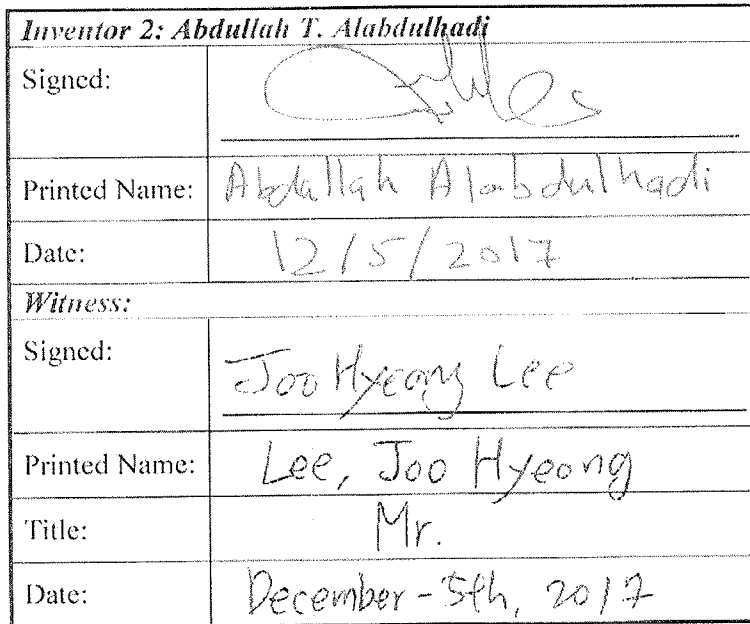 Inventor 2: Abdullah T. Alabdulhadi
Signed:
Printed Name: Abdallah Alabdulhadi
Date: 12/5/2017
Witness:
Signed: Joo Hyeong Lee
Printed Name: Lee, Joo Hyeong
Title: Mr.
Date: December-5th, 2017